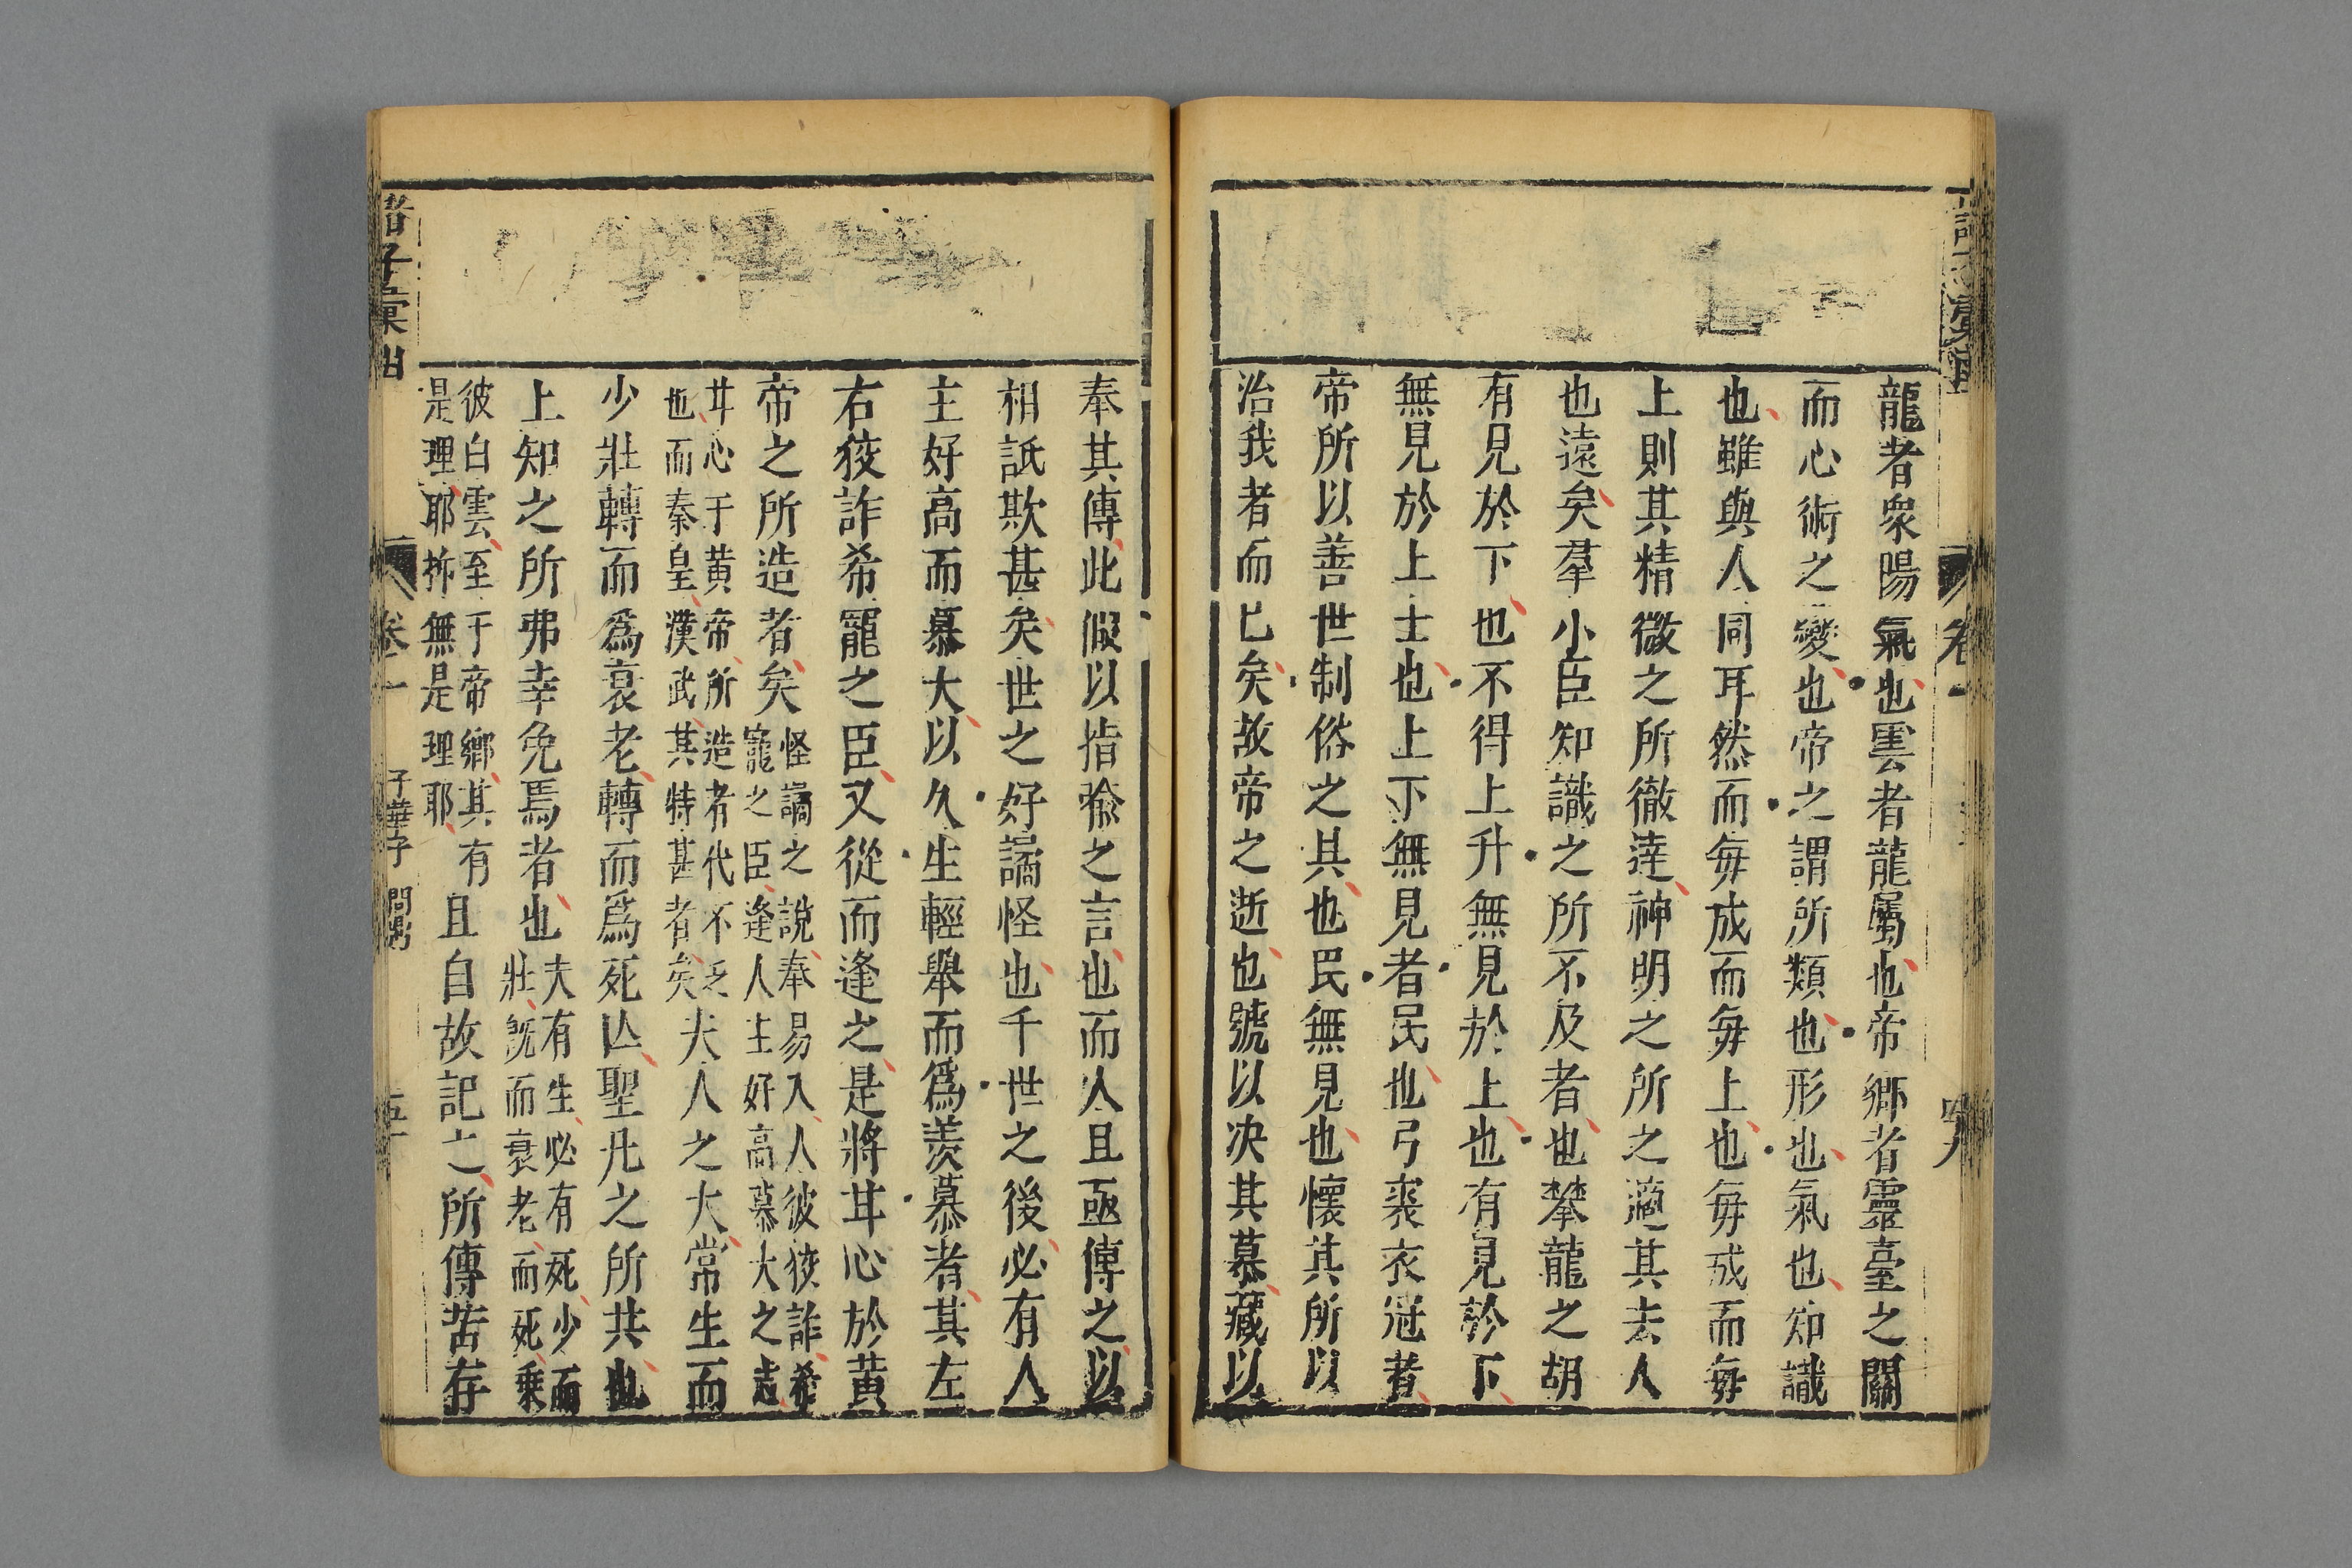 龍者衆陽氣也雲者龍屬也帝鄉者靈臺之關
而心術之變也帝之謂所類也形也氣也知識
也雖與人同耳然而每成而每上也每成而每
上則其精微之所徹達神明之所之適其去人
也遠矣羣小臣知識之所不及者也攀龍之胡
有見於下也不得上升無見於上也有見於下
無見於上士也上下無見者民也弓裘衣冠者
帝所以善世制俗之其也民無見也懷其所以
治我者而已矣故帝之逝也號以决其慕藏以
奉其傳此假以指喻之言也而人且亟傳之以
相詆欺甚矣世之好譎怪也千世之後必有人
主好高而慕大以久生輕舉而爲羨慕者其左
右狡詐希寵之臣又從而逢之是將甘心於黄
帝之所造者矣
怪譎之說奉易入人彼狡詐希
寵之臣逢人主好高慕大之志
甘心于黄帝所造者代不乏
也而秦皇漢武其特甚者矣
夫人之大常生而
少壯轉而爲衰老轉而爲死亾聖凡之所共也
上知之所弗幸免焉者也
夫有生必有死少而
壯既而衰老而死乘
彼白雲至于帝鄉其有
是理耶抑無是理耶
且自故記之所傳若存
諸子彙
卷一
子華子